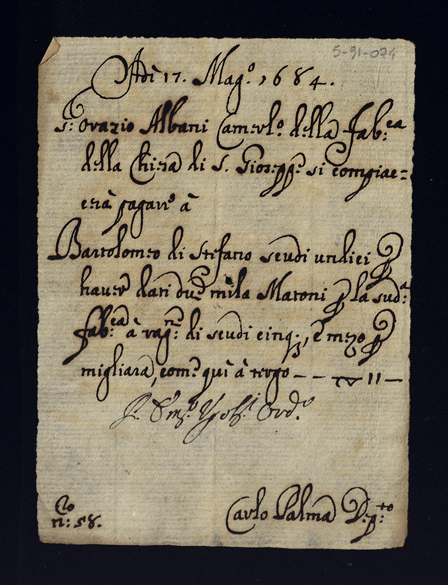 5-91-074
Adi 17. Mag.º 1684.
S.r Orazio Albani Camerl.º della Fab.ca
della Chiesa di S. Gioseppe si compiac=
erà pagare à
Bartolomeo di Stefano scudi undici p
haver dati due mila Matoni p la sud.a
fab.ca à rag.ne di scudi cinq., e mezo p
migliara, come quì à tergo — — ∇ 11 —
Ord.º
n.º 58.
Carlo Palma Dep.to